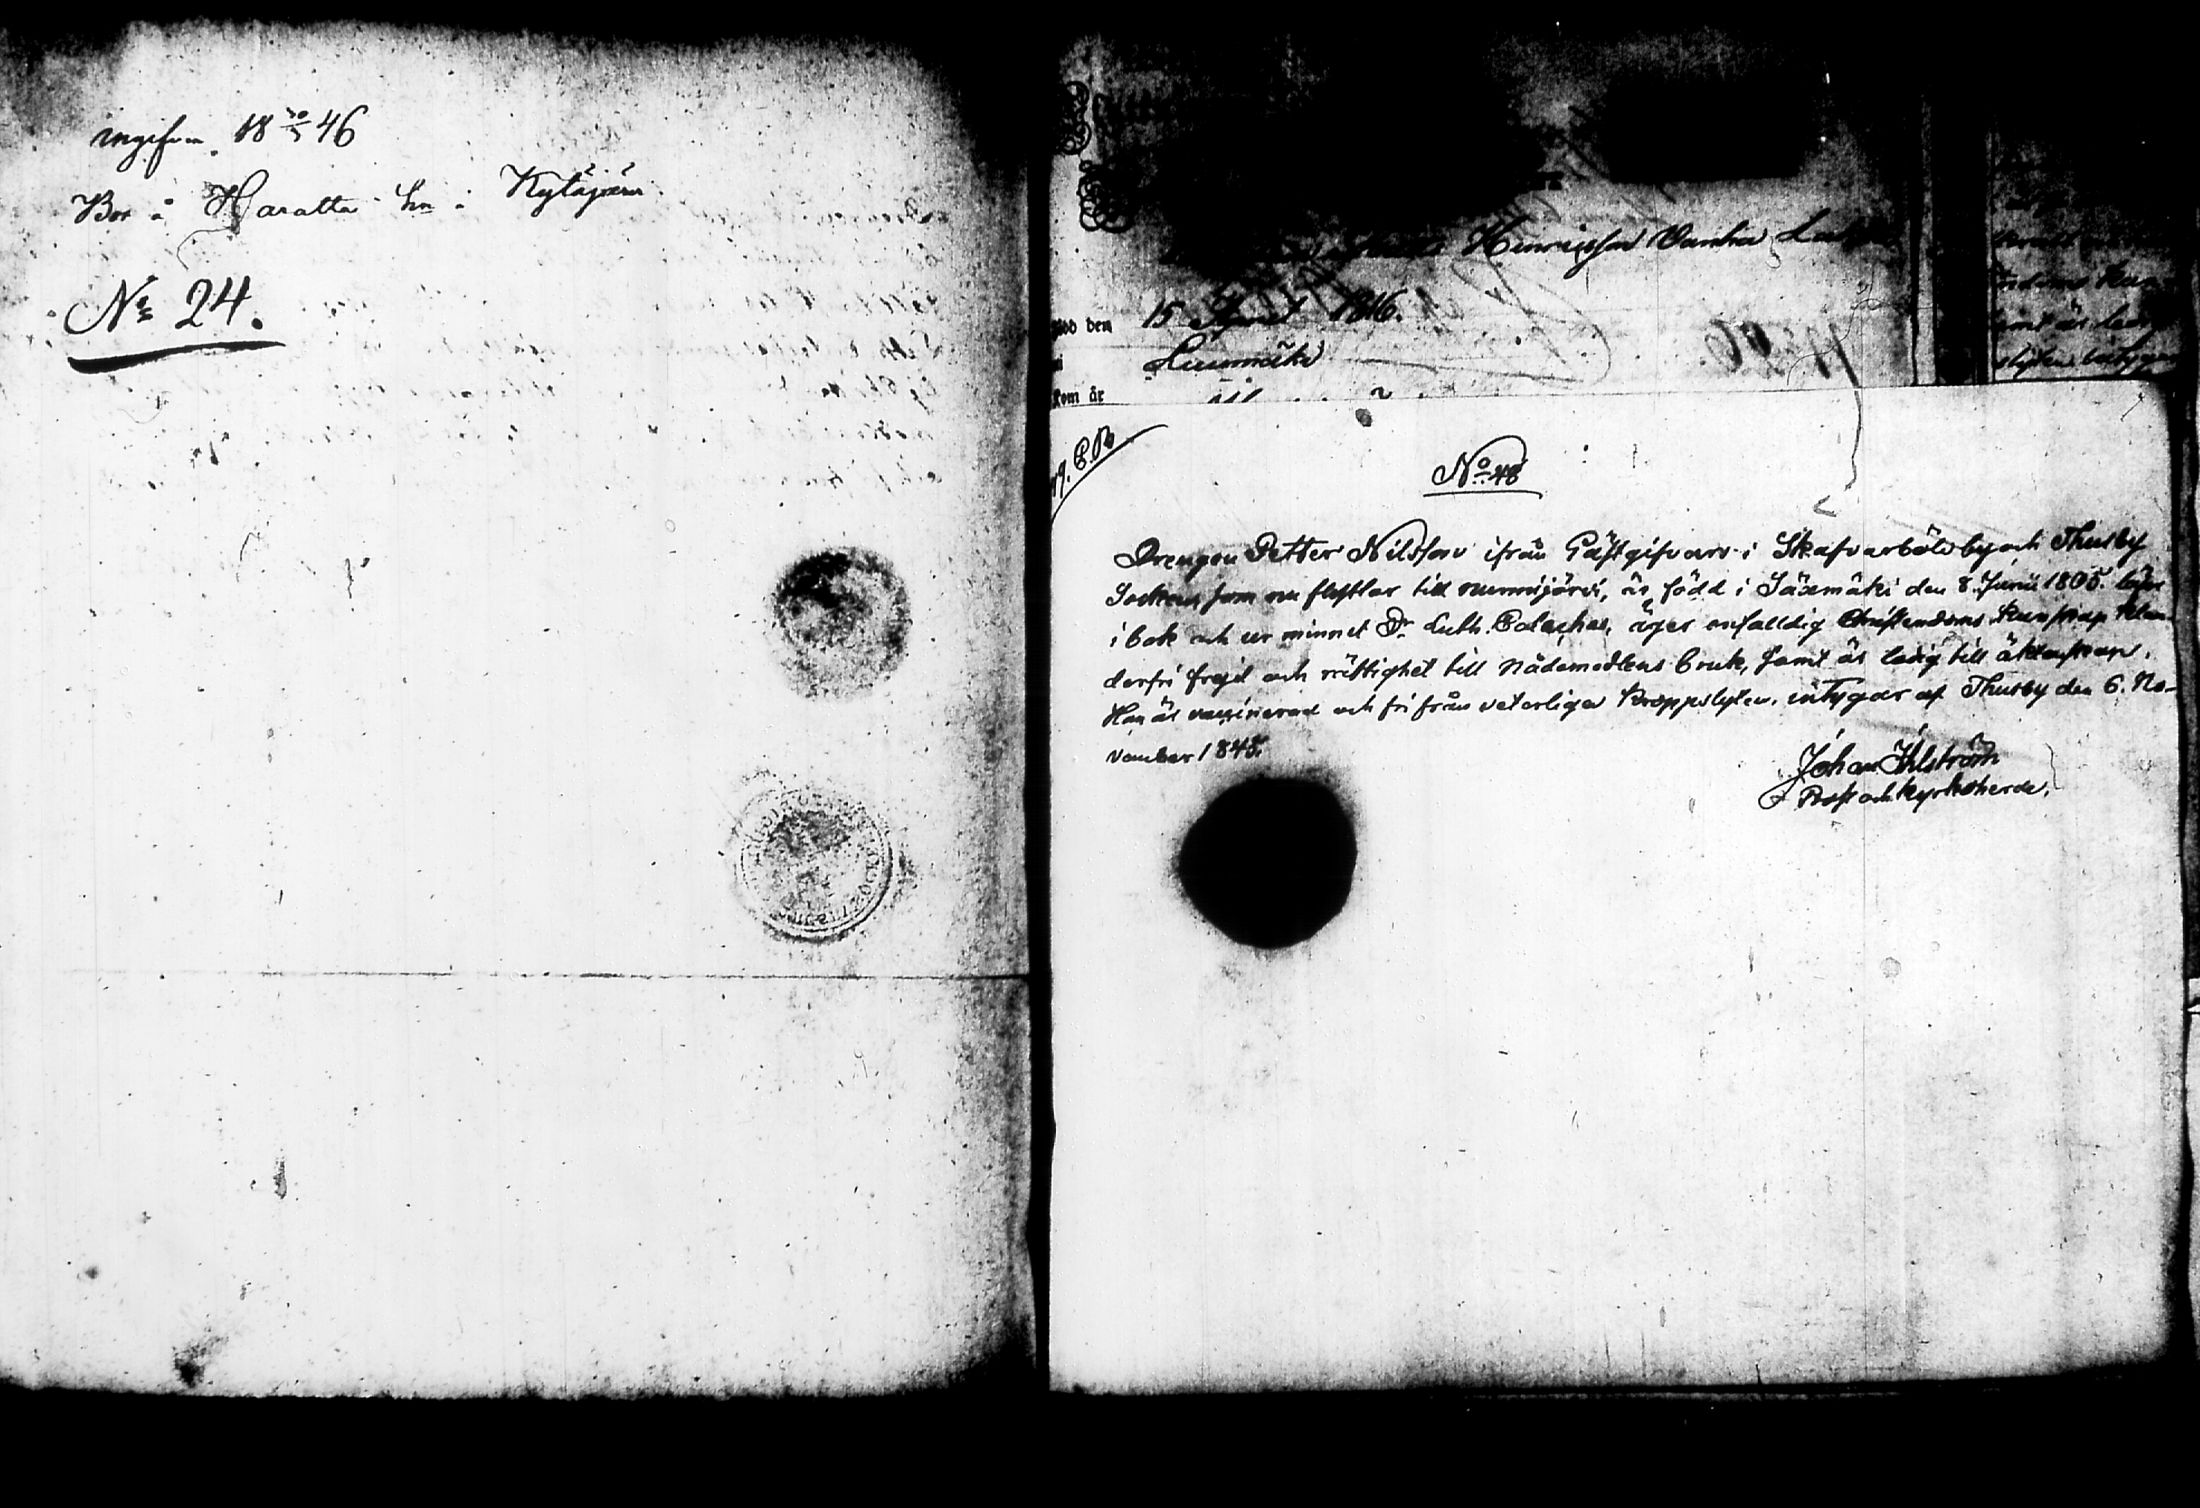 ingifven 18 30/3 46
Bor å Haratta hn i Kytäjärvi
No 24.
Hinrichsson Vanha
född den 15 April 1816.
i Luumäki
kom år
No 48
Drengen Petter Nilsson ifrån Gästgifvars i Skafvarböle by och Thusby
Socken som nu flyttar till nurmijärvi, är född i Säxmäki den 8. Junii 1805. läser
i bok och ur minnet Dr. Luth. Cateches, äger enfalldig Christendoms kunskap klan-
derfri frejd och rättighet till Nådemedlens bruk, samt är ledig till äktenskap.
Han är vaccinerad och fri från veterliga kroppslyten, intygar af Thusby den 6. No-
vember 1845.
Johan Ahlström
Prost och Kyrkoherde.